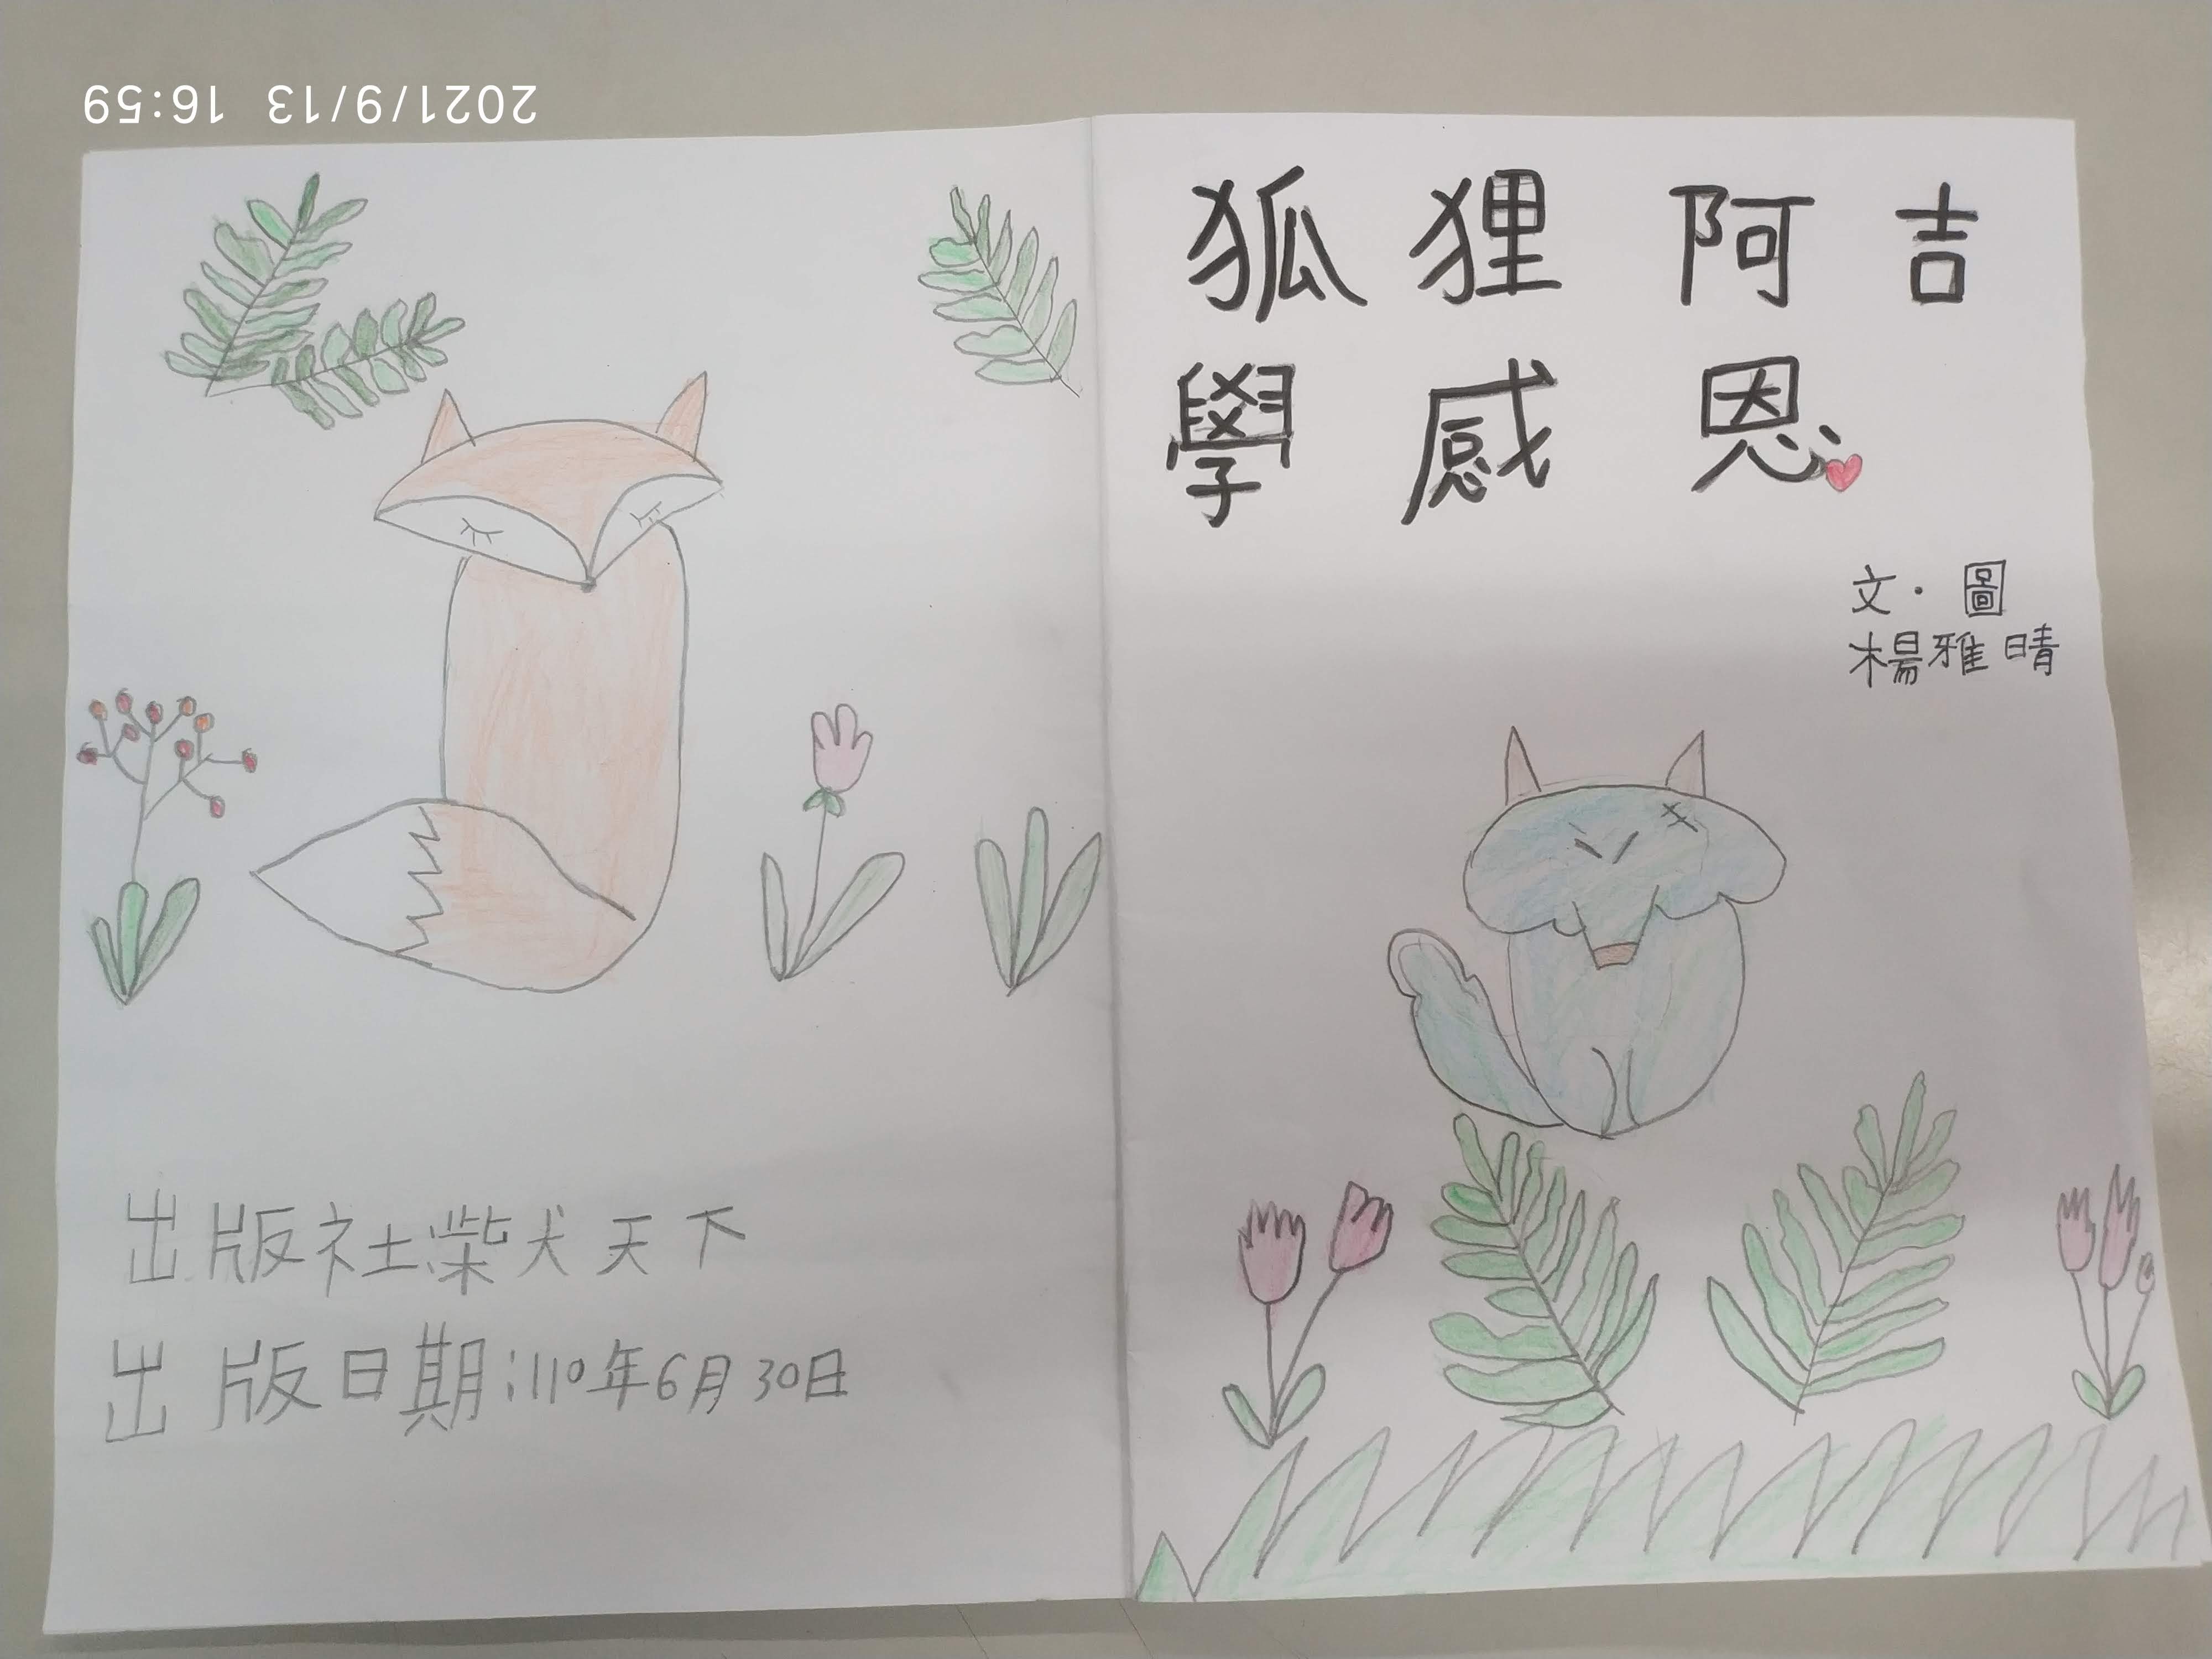 2021/9/13 16:59
狐狸阿吉
學感恩
文·圖
楊雅晴
出版社:柴犬天下
出版日期:110年6月30日